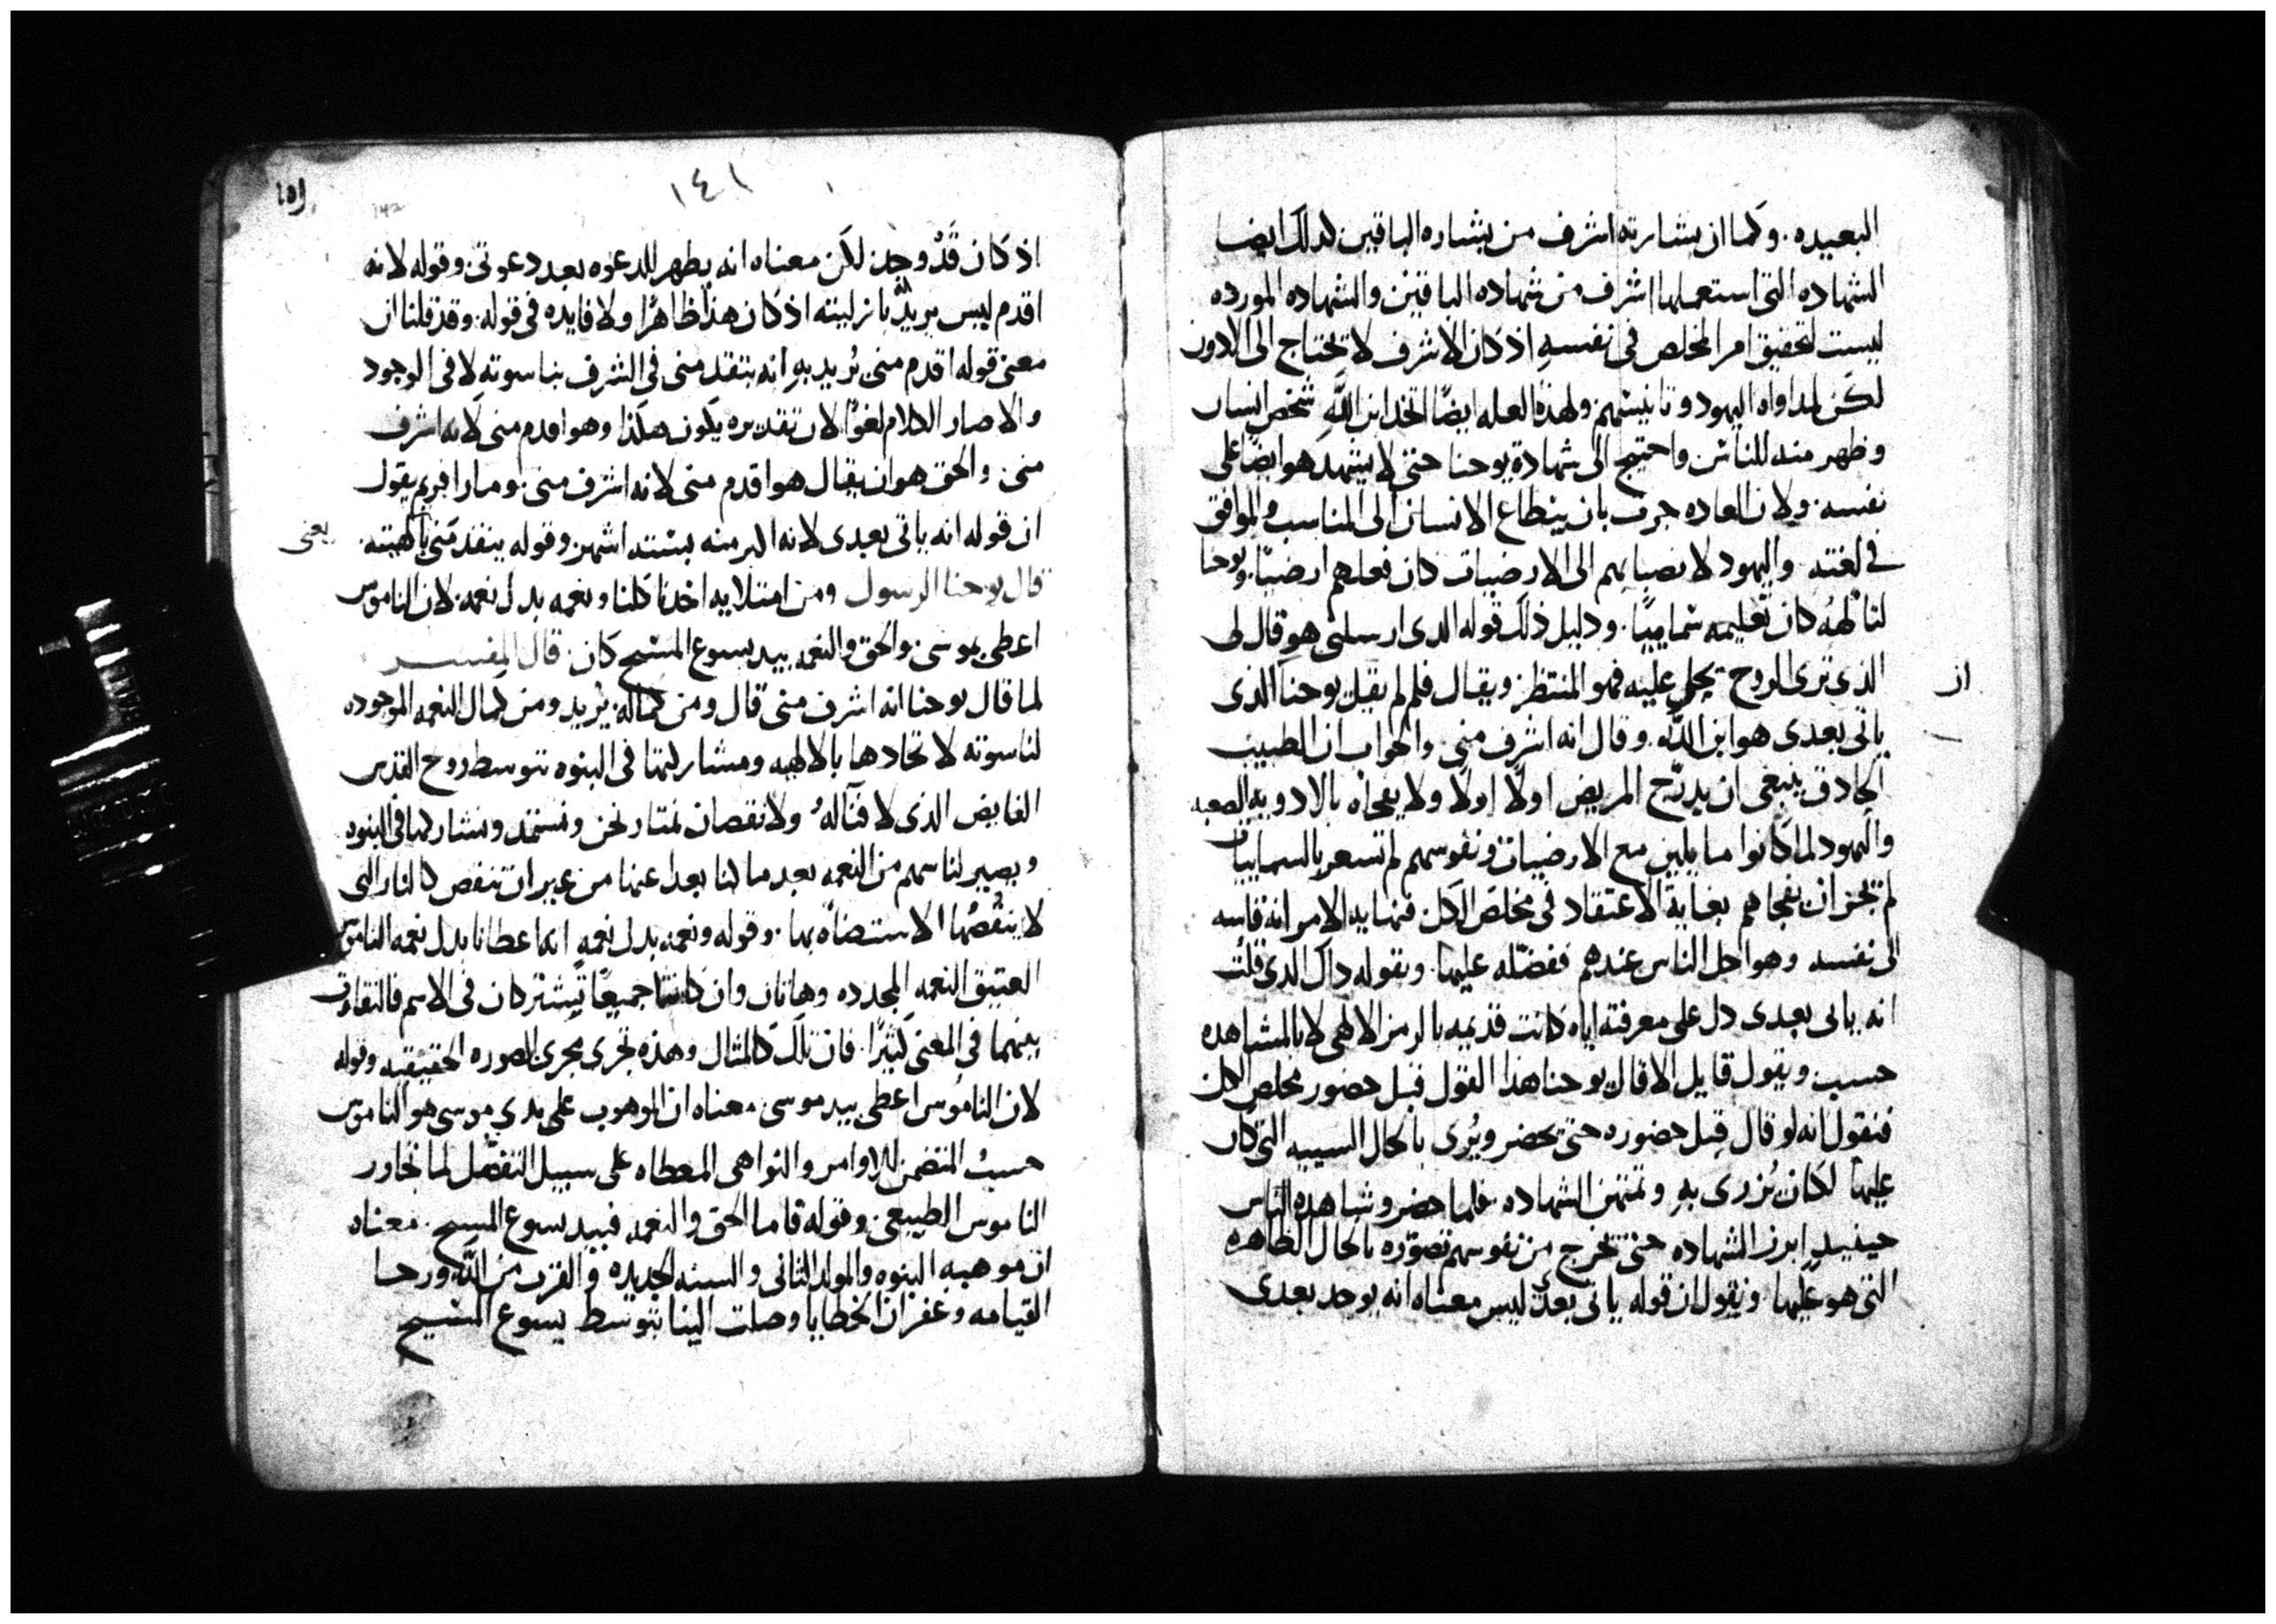 البعيده. وكما ان بشارته اشرف من بشاره الباقين كدلك ايضا
الشهاده التى استعملها اشرف من شهاده الباقين والشهاده المورده
ليست لتحقيق امر المخلص فى نفسه اذ كان الاشرف لا يحتاج الى الادون
لكن لمداواه اليهود وتانيسهم ولهذه العله ايضًا اتخد ابن اللَّه شخص انسان
وظهر منه للناس واحتيج الى شهادة يوحنا حتى لا يشهد هو ايضًا على
نفسه. ولان العاده جرت بان ينطاع الانسان الى المناسب والموافق
فى لغته واليهود لانصبابهم الى الارضيات كان فعلهم ارضيًا. ويوحنا
لتالهه كان تعليمه سماييًا. ودليل ذلك قوله الدى ارسلنى هو قال لى
ان
الذى ترى الروح يحل عليه فهو المنتظر ويقال فلم لم يقل يوحنا الذى
ياتى بعدى هو ابن اللَّه. وقال انه اشرف منى. والجواب ان الطبيب
الحادق ينبغى ان يدرّج المريض اولًا اولًا ولا يفجاه بالادويه الصعبه
واليهود لما كانوا مايلين مع الارضيات ونفوسهم لم تسعر بالسماييات
لم يجز ان نفجاهم بغاية الاعتقاد فى مخلص الكل فنهايه الامر انه قاسه
الى نفسه وهو اجل الناس عندهم ففضّله عليها. وبقوله داك الدى قلت
انه ياتى بعدى دل على معرفته اياه كانت قديمه بالرمز الالهى لا بالمشاهده
حسب ويقول قايل الا قال يوحنا هذا القول قبل حضور مخلص الكل
فنقول انه لو قال قبل حضوره حتى يحضر ويُرى بالحال السييه التى كان
عليها لكان يُزرى به وتمتهن الشهاده. فلما حضر وشاهده الناس
حينيدٍ ابرز الشهاده حتى تخرج من نفوسهم تصوّره بالحال الظاهره
التى هو عليها. ونقول ان قوله ياتى بعدى ليس معناه انه يوجد بعدى
١٤١
142
اذ كان قد وجد لكن معناه انه يظهر للدعوه بعد دعوتى وقوله لانه
اقدم ليس يريد بازليته اذ كان هذا ظاهرًا ولا فايده فى قوله. وقد قلنا ان
معنى قوله اقدم منى يُريد به انه يتقدمنى فى الشرف بناسوته لا فى الوجود
والا صار الكلام لغوًا لان تقديره يكون هكذا وهو اقدم منى لانه اشرف
منى. والحق هو ان يقال هو اقدم منى لانه اشرف منى. ومار افريم يقول
ان قوله انه ياتى بعدى لانه اكبر منه بستة اشهر. وقوله يتقدمنى بالهيته.
يعنى
قال يوحنا الرسول ومن امتلايه اخذنا كلنا ونعمه بدل نعمه. لان الناموس
اعطى بموسى. والحق والنعمه بيد يسوع المسيح كان. قال المفسر
لما قال يوحنا انه اشرف منى قال ومن كماله. يُريد ومن كمال النعمه الموجوده
لناسوته لاتحادها بالالهيه ومشاركتها فى البنوه بتوسط روح القدس
الفايض الذى لا فنآ لهُ ولا نقصان نمتار نحن ونستمد ونشاركها فى البنوه
ويصير لنا سهم من النعمه بعد ما كنا بعدا عنها من غير ان تنقص كالنار التى
لا ينقصُها الاستضاه بها. وقوله ونعمه بدل نعمهٍ انه اعطانا بدل نعمه الناموس
العتيق النعمه المجدده وهاتان وان كانتا جميعًا تشتركان فى الاسم فالتفاوت
بينهما فى المعنى كثيرًا. فان تلك كالمثال وهذه تجرى مجرى الصوره الحقيقيه وقوله
لان الناموس اعطى بيد موسى معناه ان الموهوب على يدى موسى هو الناموس
حسب المتضمن للاوامر والنواهى المعطاه على سبيل التفضّل لما تجاوز
الناموس الطبيعى. وقوله فاما الحق والنعمه فبيد يسوع المسيح. معناه
ان موهبه البنوه والمولد الثانى والسنه الجديده والقرب من اللَّه ورجا
القيامه وغفران الخطايا وصلت الينا بتوسط يسوع المسيح